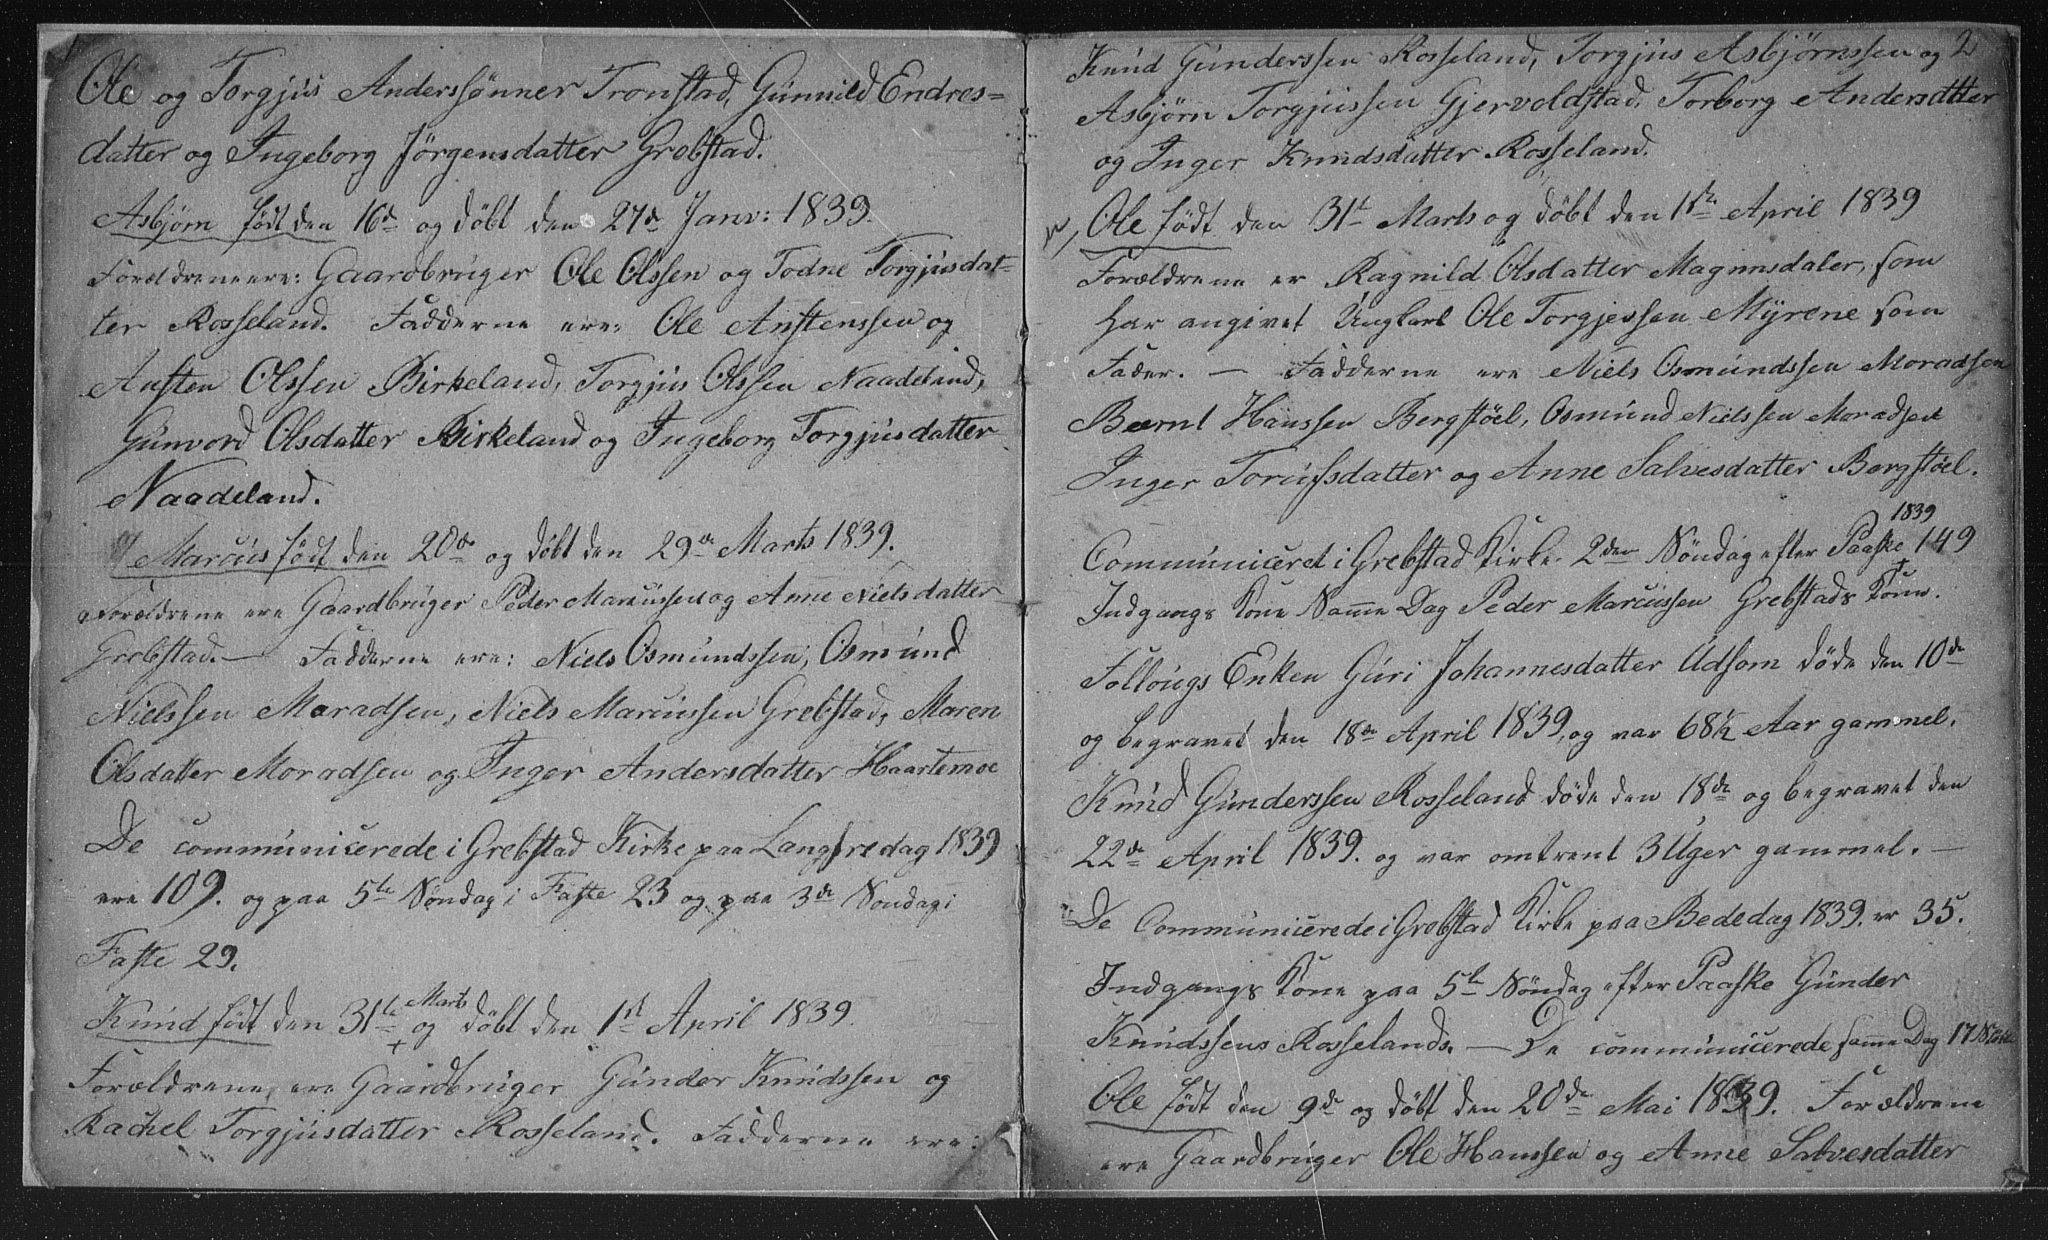 Ole og Torgjus Anderssønner Tronstad, Gunnild Endres=
datter og Ingeborg Jørgensdatter Grebstad.
Asbjørn født den 16de og døbt den 27de Janv: 1839.
Forældrene ere: Gaardbruger Ole Olssen og Todne Torgjusdat-
ter Rosseland. Fadderne ere: Ole Anstenssen og
Ansten Olssen Birkeland, Torgjus Olssen Naadeland,
Gunvord Olsdatter Birkeland og Ingeborg Torgjusdatter
Naadeland.
Marcus født den 20de og døbt den 29de Marts 1839.
Forældrene ere Gaardbruger Peder Marcussen og Anne Nielsdatter
Grebstad. — Fadderne ere: Niels Osmundssen, Osmund
Nielssen Moradsen, Niels Marcussen Grebstad, Maren
Olsdatter Moradsen og Inger Andersdatter Haartemoe
De communicerede i Grebstad Kirke paa Langfredag 1839
ere 109. og paa 5te Søndag i Faste 23 og paa 3de Søndag i
Faste 29.
Knud født den 31te Marts og døbt den 1st April 1839
Forældrene ere Gaardbruger Gunder Knudssen og
Rachel Torgjusdatter Rosseland. Fadderne ere:
2
Knud Gunderssen Rosseland, Torgjus Asbjørnssen og
Asbjørn Torgjussen Gjervoldstad, Torborg Andersdatter
og Inger Knudsdatter Rosseland.
Ole født den 31te Marts og døbt den 1ste April 1839
Forældrene er Ragnild Olsdatter Magnusdaler, som
har angivet Ungkarl Ole Torgjessen Myrene som
Fader. — Fadderne ere Niels Osmundssen Moradsen
Bernt Hanssen Bergstøel, Osmund Nielssen Moradsen
Inger Torussdatter og Anne Salvesdatter Bergstøel.
1839
Communiceret i Grebstad Kirke 2den Søndag efter Paaske 149
Indgangs Kone Samme Dag Peder Marcussen Grebstads Kone.
Follougs Enken Guri Johannesdatter Udsom døde den 10de
og begravet den 18de April 1839, og var 68½ Aar gammel.
Knud Gunderssen Rosseland døde den 18de og begravet den
22de April 1839. og var omtrent 3 Uger gammel. —
De Communicerede i Grebstad Kirke paa Bededag 1839. er 35.
Indgangs Kone paa 5te Søndag efter Paaske Gunder
Knudssens Rosselands. — De communicerede samme Dag 17
Ole født den 9de og døbt den 20de Mai 1839. Forældrene
ere Gaardbruger Ole Hanssen og Anne Salvesdatter